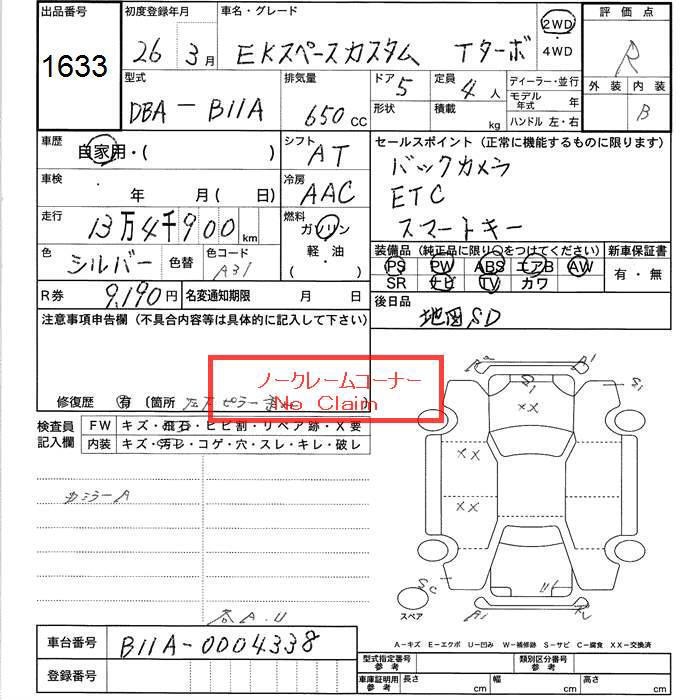 出品番号
1633
初度登録年月
26 3月
車名・グレード
EKスペースカスタム Tターボ
2WD
・
4WD
評価点
R
外装 内装
B
型式
DBA-B11A
排気量
650CC
ドア 5
形状
定員 4人
積載 kg
ディーラー・並行
モデル年式 年
ハンドル 左・右
車歴
自家用・( )
シフト
AT
車検
年 月(日)
冷房
AAC
走行
13万4千900km
燃料
ガソリン
軽・油
( )
色 シルバー 色替
色コード
A31
R券 9,190円
名変通知期限 月 日
セールスポイント(正常に機能するものに限ります)
バックカメラ
ETC
スマートキー
装備品(純正品に限り○をつけてください)
PS PW ABS エアB AW
SR ナビ TV カワ
新車保証書
有・無
後日品
地図SD
注意事項申告欄(不具合内容等は具体的に記入して下さい)
ノークレームコーナー
No Claim
修復歴 有 〔箇所 ピラー
検査員
記入欄
FW キズ・飛石・ヒビ割・リペア跡・X要
内装 キズ・汚レ・コゲ・穴・スレ・キレ・破レ
カミラーA
各A.U
A1
S1
XX
XX XX
XX
SC
スペア
A-キズ E-エクボ U-凹み W-補修跡 S-サビ C-腐食 XX-交換済
車台番号 B11A-0004338
登録番号
型式指定番号
参考
類別区分番号
参考
車庫証明用
参考
長さ cm 幅 cm 高さ cm